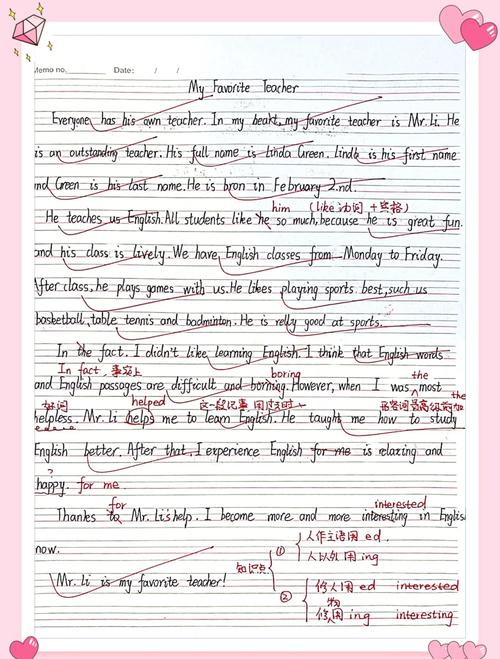 Memo no. Date: / /
My Favorite Teacher
Everyone has his own teacher. In my beakt, my favorite teacher is Mr. Li. He
is an outstanding teacher. His full name is Linda Green. Linda is his first name
and Green is his last name. He is bron in February 2.nd.
him (like 动词 + 宾格)
He teaches us English. All students like he so much, because he is great fun.
and his class is lively. We have English classes from Monday to Friday.
After class, he plays games with us. He likes playing sports best, such us
basketball, table tennis and badminton. He is relly good at sports.
In the fact. I didn't like learning English. I think that English words
In fact. 事实上 boring the
and English passages are difficult and borning. However, when I was most
动词 helped 这一段记事 用过去时 形容词最高级前加 the
helpless. Mr. Li helps me to learn English. He taught me how to study
English better. After that, I experience English for me is relaxing and
?
happy. for me.
for interested
Thanks to Mr. Li's help. I become more and more interesting in Englis
now.
知识点 ① 人作主语用 ed.
人以外用 ing
Mr. Li is my favorite teacher!
② 修人用 ed interested
修物用 ing interesting